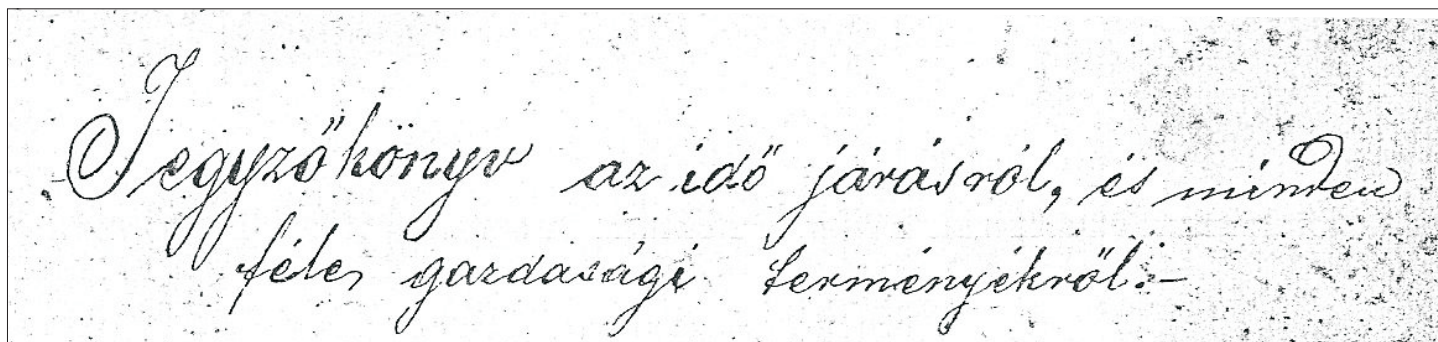 Jegyzőkönyv az idő járásról, és minden
féle gazdasági terményékről.-